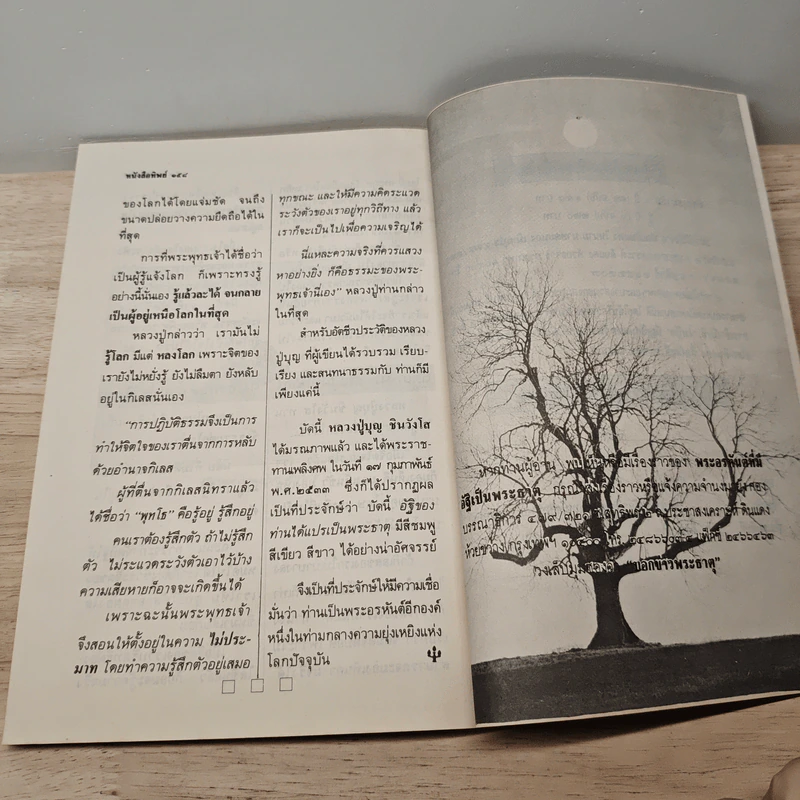 หนังสือทิพย์ ๑๕๔
ของโลกได้โดยแจ่มชัด จนถึง
ขนาดปล่อยวางความยึดถือได้ใน
ที่สุด
การที่พระพุทธเจ้าได้ชื่อว่า
เป็นผู้รู้แจ้งโลก ก็เพราะทรงรู้
อย่างนี้นั่นเอง รู้แล้วละได้ จนกลาย
เป็นผู้อยู่เหนือโลกในที่สุด
หลวงปู่กล่าวว่า เรามันไม่
รู้โลก มีแต่ หลงโลก เพราะจิตของ
เรายังไม่หยั่งรู้ ยังไม่ลืมตา ยังหลับ
อยู่ในกิเลสนั่นเอง
"การปฏิบัติธรรมจึงเป็นการ
ทำให้จิตใจของเราตื่นจากการหลับ
ด้วยอำนาจกิเลส
ผู้ที่ตื่นจากกิเลสนิทราแล้ว
ได้ชื่อว่า "พุทโธ" คือรู้อยู่ รู้สึกอยู่
คนเราต้องรู้สึกตัว ถ้าไม่รู้สึก
ตัว ไม่ระแวดระวังตัวเอาไว้บ้าง
ความเสียหายก็อาจจะเกิดขึ้นได้
เพราะฉะนั้นพระพุทธเจ้า
จึงสอนให้ตั้งอยู่ในความ ไม่ประ-
มาท โดยทำความรู้สึกตัวอยู่เสมอ
ทุกขณะ และให้มีความคิดระแวด
ระวังตัวของเราอยู่ทุกวิถีทาง แล้ว
เราก็จะเป็นไปเพื่อความเจริญได้
นี่แหละความจริงที่ควรแสวง
หาอย่างยิ่ง ก็คือธรรมะของพระ-
พุทธเจ้านี่เอง" หลวงปู่ท่านกล่าว
ในที่สุด
สำหรับอัตชีวประวัติของหลวง
ปู่บุญ ที่ผู้เขียนได้รวบรวม เรียบ-
เรียง และสนทนาธรรมกับ ท่านก็มี
เพียงแค่นี้
บัดนี้ หลวงปู่บุญ ชินวังโส
ได้มรณภาพแล้ว และได้พระราช-
ทานเพลิงศพ ในวันที่ ๑๗ กุมภาพันธ์
พ.ศ.๒๕๓๓ ซึ่งก็ได้ปรากฏผล
เป็นที่ประจักษ์ว่า บัดนี้ อัฐิของ
ท่านได้แปรเป็นพระธาตุ มีสีชมพู
สีเขียว สีขาว ได้อย่างน่าอัศจรรย์
จึงเป็นที่ประจักษ์ให้มีความเชื่อ
มั่นว่า ท่านเป็นพระอรหันต์อีกองค์
หนึ่งในท่ามกลางความยุ่งเหยิงแห่ง
โลกปัจจุบัน
หากท่านผู้อ่าน พบเรื่องราวของ พระอรหันต์ที่มี
อัฐิเป็นพระธาตุ กรุณาส่งเรื่องราวหรือแจ้งความจำนงมายัง กอง
บรรณาธิการ ประชาสงเคราะห์ ดินแดง
ห้วยขวาง กรุงเทพฯ
วงเล็บมุมซอง "บอกข่าวพระธาตุ"